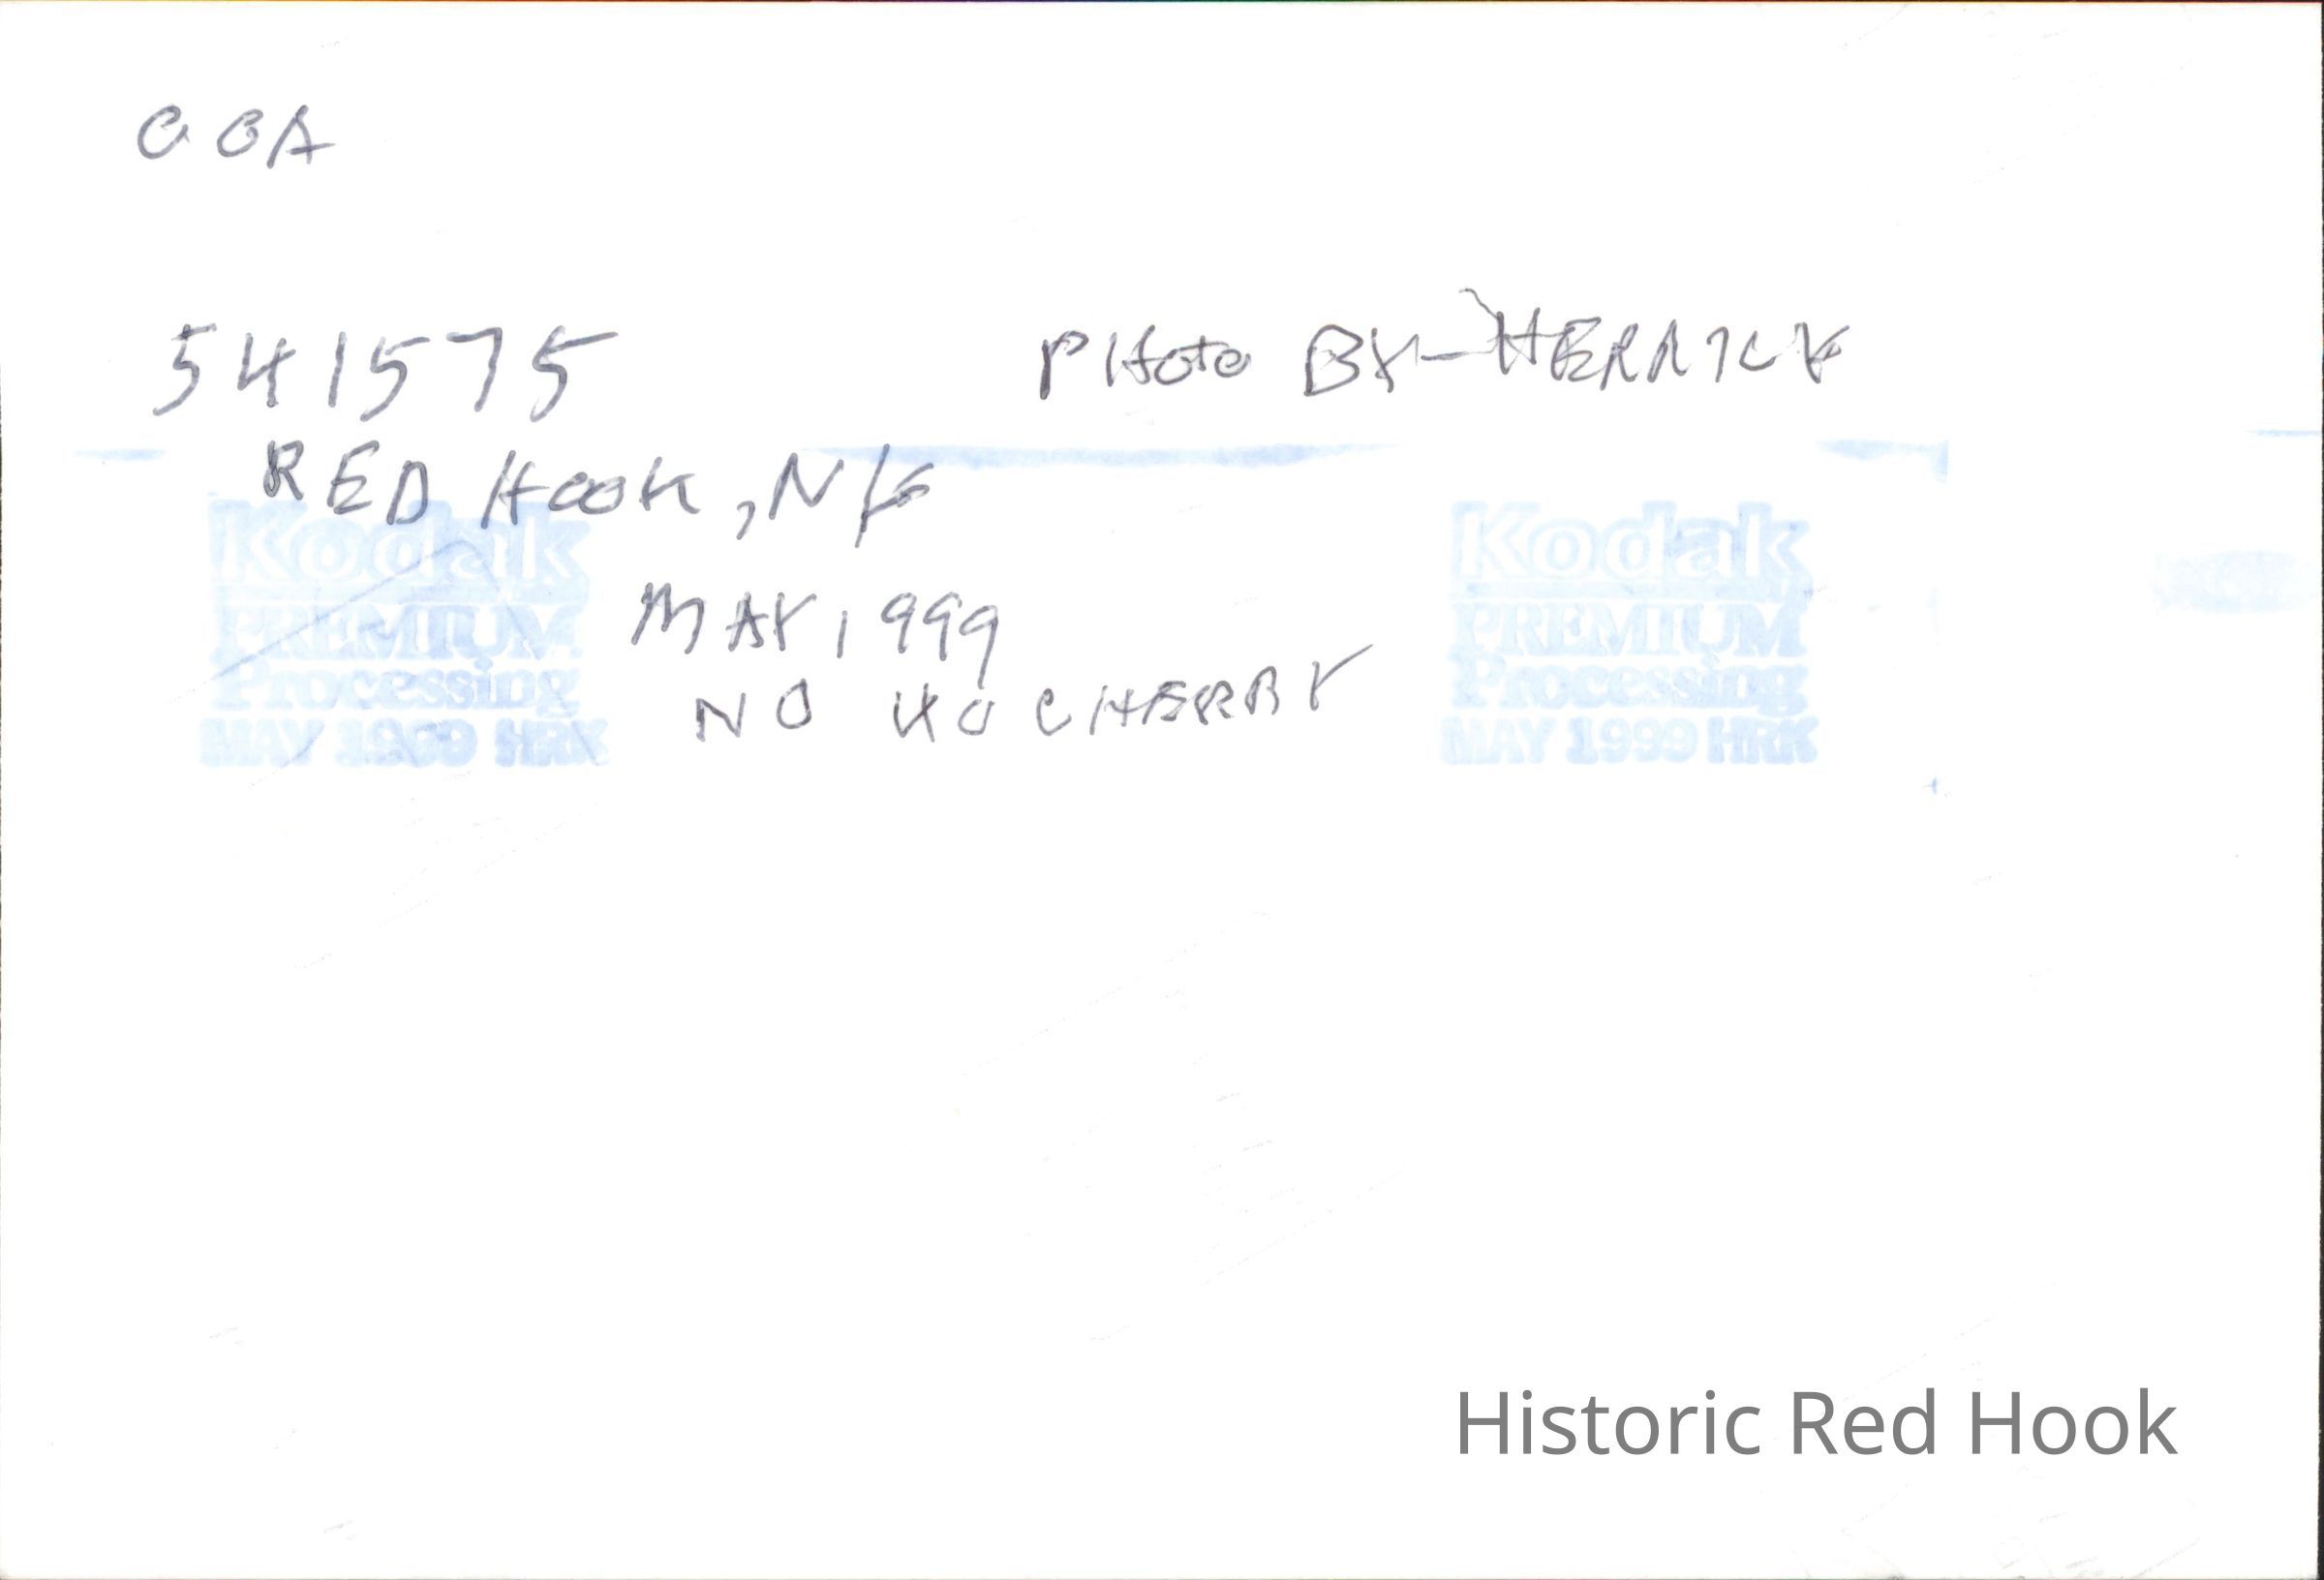 541575
PHOTO BY-HERRICK
RED HOOK, NY
MAY 1999
NO 40 CHERRY
Kodak
PREMIUM
Processing
MAY 1999 HRK
Kodak
PREMIUM
Processing
MAY 1999 HRK
Historic Red Hook